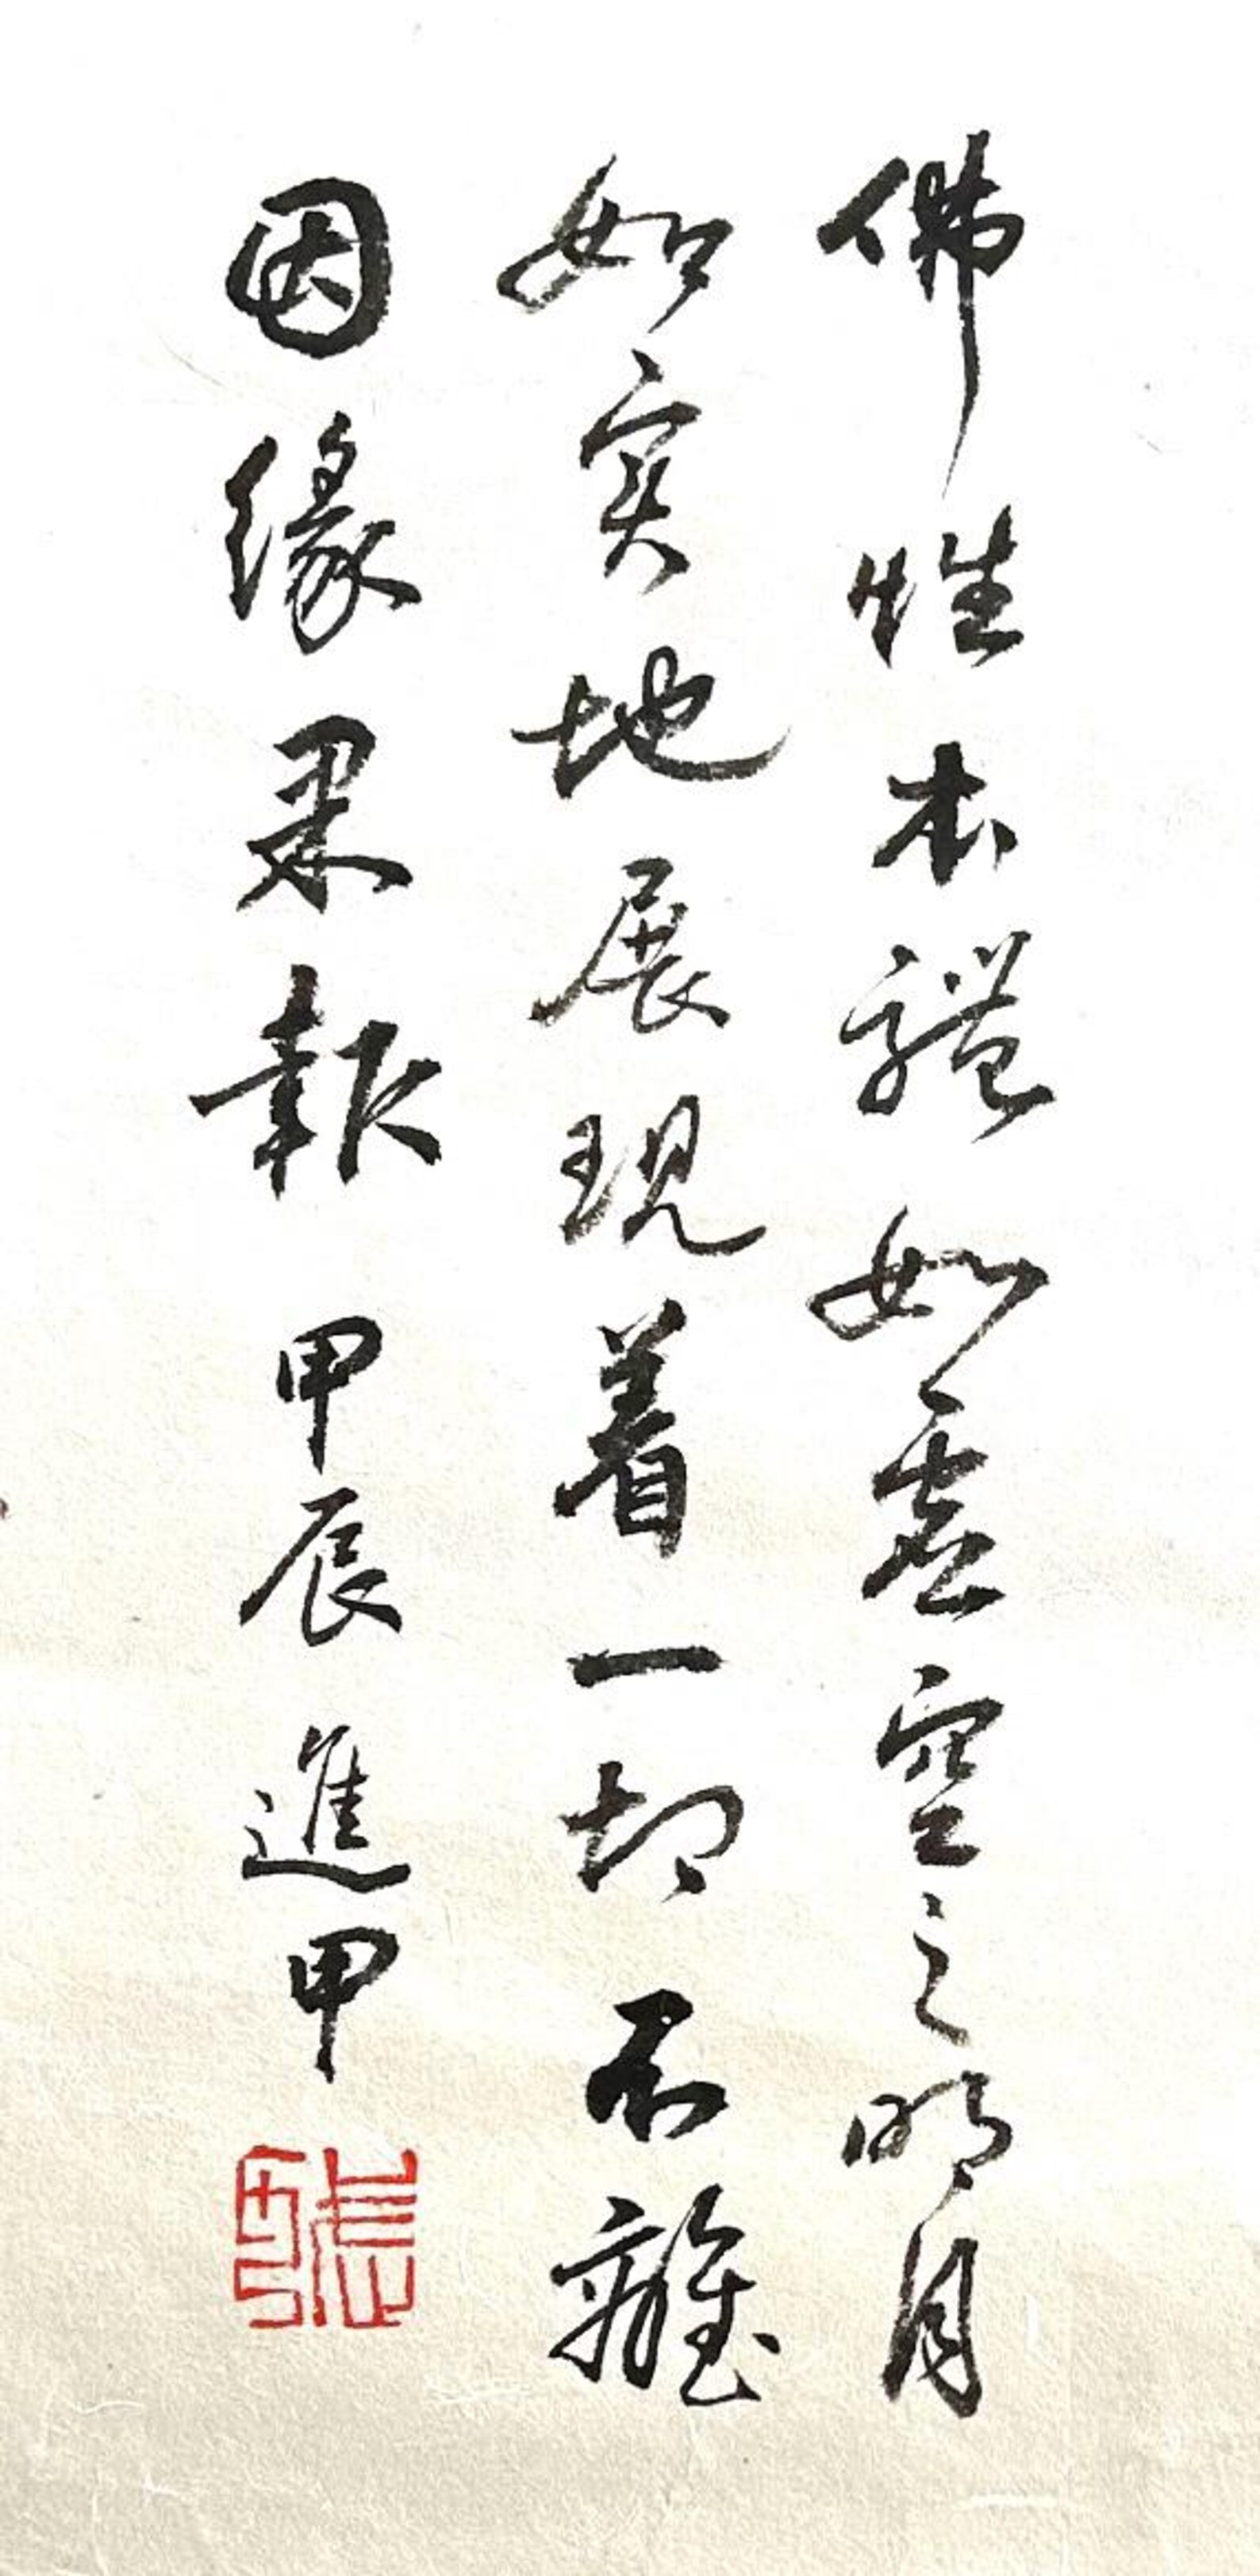 佛性本體如虛空之明月
如实地展現着一切不離
因緣果報甲辰進甲